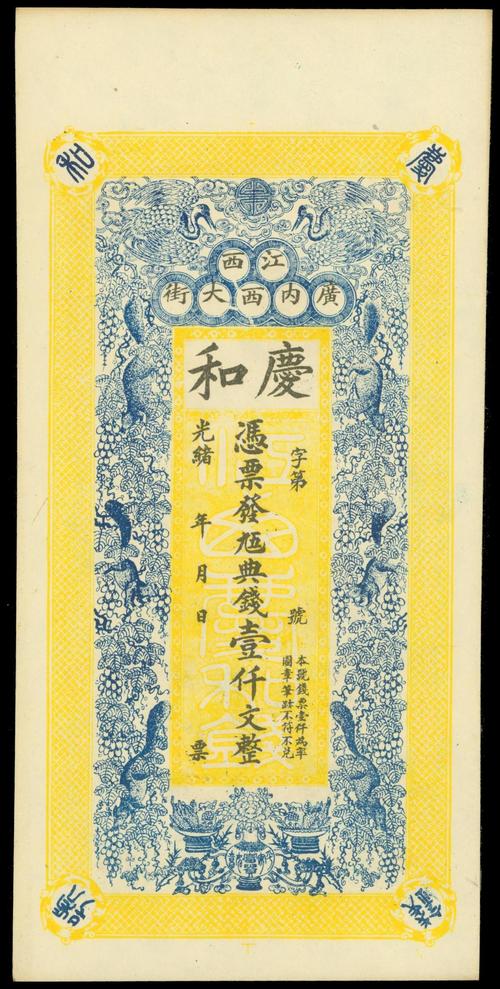 慶和
江西
廣內西大街
慶和
字第 號
本號錢票壹仟為率
圖章筆跡不符不兌
憑票發 典錢壹仟文整
光緒 年 月 日 票